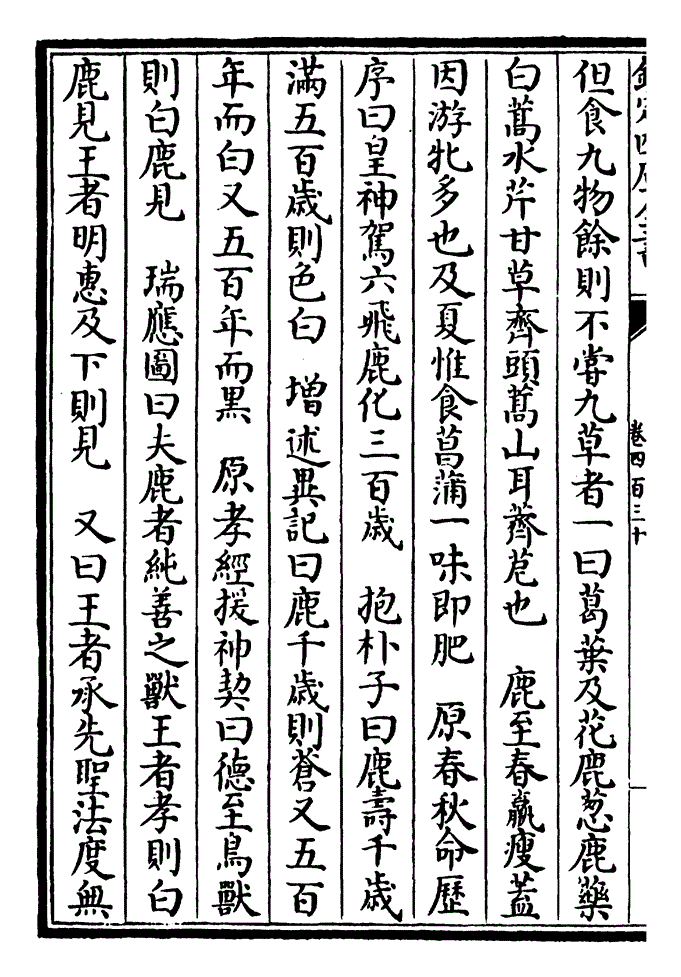 卷四百三十
但食九物餘則不嘗九草者一曰葛葉及花鹿葱鹿藥
白蒿水芹甘草齊頭蒿山耳薺苨也　鹿至春羸瘦蓋
因游牝多也及夏惟食菖蒲一味即肥　原春秋命歷
序曰皇神駕六飛鹿化三百歲　抱朴子曰鹿壽千歲
滿五百歲則色白　增述異記曰鹿千歲則蒼又五百
年而白又五百年而黑　原孝經援神契曰德至鳥獸
則白鹿見　瑞應圖曰夫鹿者純善之獸王者孝則白
鹿見王者明惠及下則見　又曰王者承先聖法度無